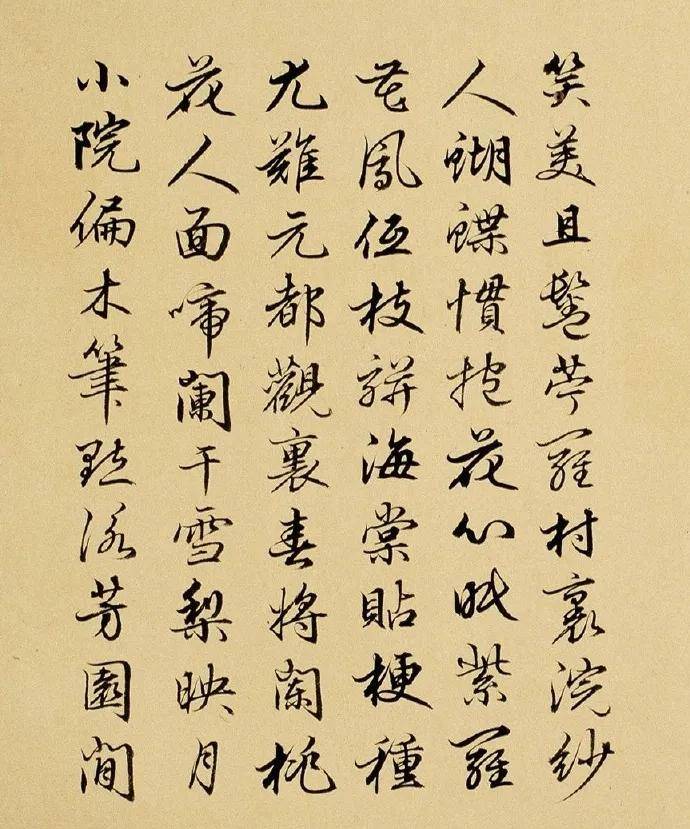 笑美且鬈苧羅村裏浣紗
人蝴蝶慣抱花心眠紫羅
鳳低枝骿海棠貼梗種
尤難元都觀裏春將闌桃
花人面啼闌干雪梨映月
小院偏木筆點芳園間